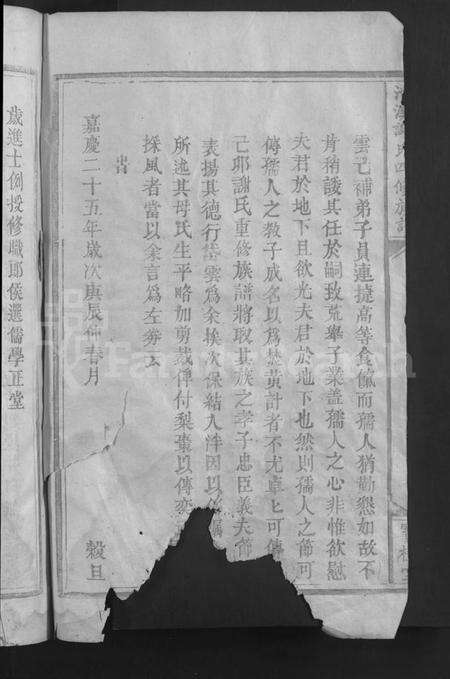 雲已補弟子員連捷高等食餼而孺人猶勸懇如故不
肯稍諼其任於嗣致荒舉子業蓋孺人之心非惟欲慰
夫君於地下且欲光夫君於地下也然則孺人之節可
傳孺人之教子成名以為焚黃計者不尤卓卓可傳
己卯謝氏重修族譜將取其族之孝子忠臣義夫節
表揚其德行雲為余挨次保結入泮因以
所述其母氏生平略加剪裁俾付梨棗以傳
採風者當以余言為左劵云
嘉慶二十五年歲次庚辰仲春月
穀旦
歲進士例授修職郎侯選儒學正堂